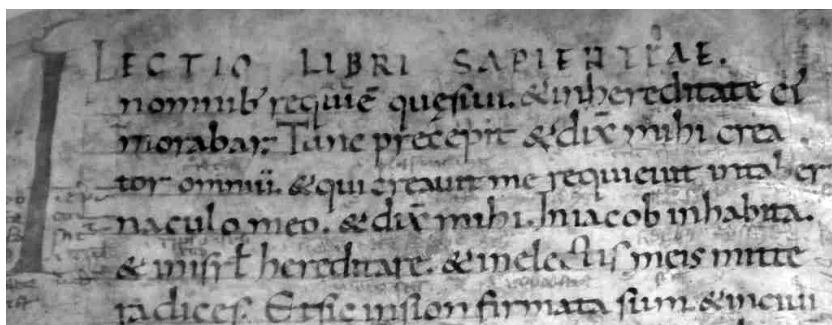 LECTIO LIBRI SAPIENTIAE.
In omnib; requiē quesiui. & inhereditate ei
morabar. Tunc precepit & dix̄ mihi crea
tor omniū. & qui creauit me requieuit intaber
naculo meo. & dix̄ mihi. Iniacob inhabita.
& inisrł hereditare. & inelectis meis mitte
radices. Et sic insion firmata sum & inciui